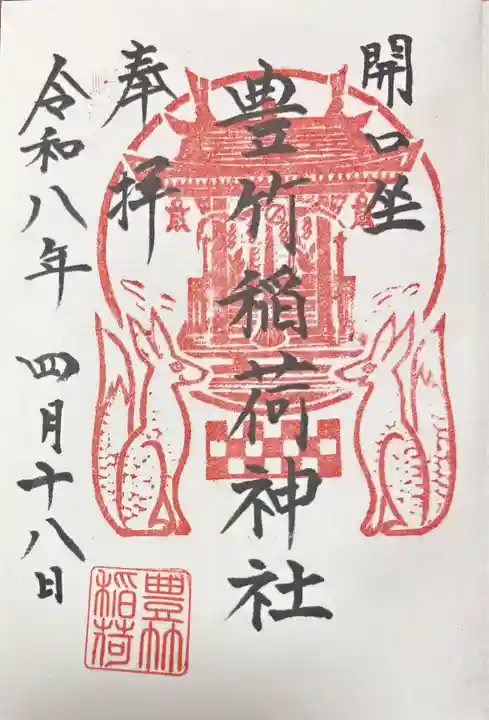 開口坐
豊竹稲荷神社
奉拝
令和八年 四月十八日
豊竹
稲荷